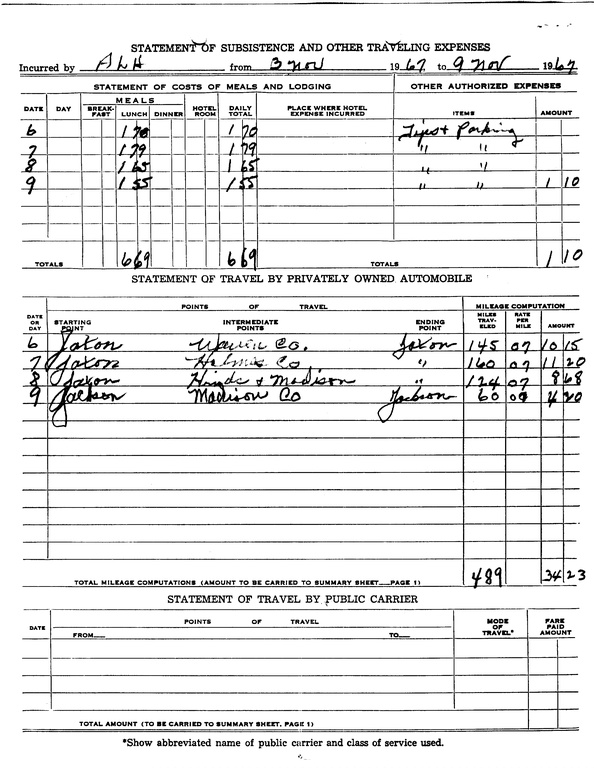 STATEMENT OF SUBSISTENCE AND OTHER TRAVELING EXPENSES
Incurred by ALH from 3 Nov 1967 to 9 Nov 1967
STATEMENT OF COSTS OF MEALS AND LODGING OTHER AUTHORIZED EXPENSES
DATE DAY MEALS BREAK-FAST LUNCH DINNER HOTEL ROOM DAILY TOTAL PLACE WHERE HOTEL EXPENSE INCURRED ITEMS AMOUNT
6 1 70 1 70 Tips + Parking
7 1 79 1 79 " "
8 1 65 1 65 " "
9 1 55 1 55 " " 1 10
TOTALS 6 69 6 69 TOTALS 1 10
STATEMENT OF TRAVEL BY PRIVATELY OWNED AUTOMOBILE
POINTS OF TRAVEL MILEAGE COMPUTATION
DATE OR DAY STARTING POINT INTERMEDIATE POINTS ENDING POINT MILES TRAV-ELED RATE PER MILE AMOUNT
6 Jaxon Warren Co. Jaxon 145 07 10 15
7 Jaxon Holmes Co " 160 07 11 20
8 Jaxon Hinds + Madison " 124 07 8 68
9 Jackson Madison Co Jackson 60 07 4 20
TOTAL MILEAGE COMPUTATIONS (AMOUNT TO BE CARRIED TO SUMMARY SHEET PAGE 1) 489 34 23
STATEMENT OF TRAVEL BY PUBLIC CARRIER
DATE POINTS OF TRAVEL MODE OF TRAVEL* FARE PAID AMOUNT
FROM TO
TOTAL AMOUNT (TO BE CARRIED TO SUMMARY SHEET, PAGE 1)
*Show abbreviated name of public carrier and class of service used.